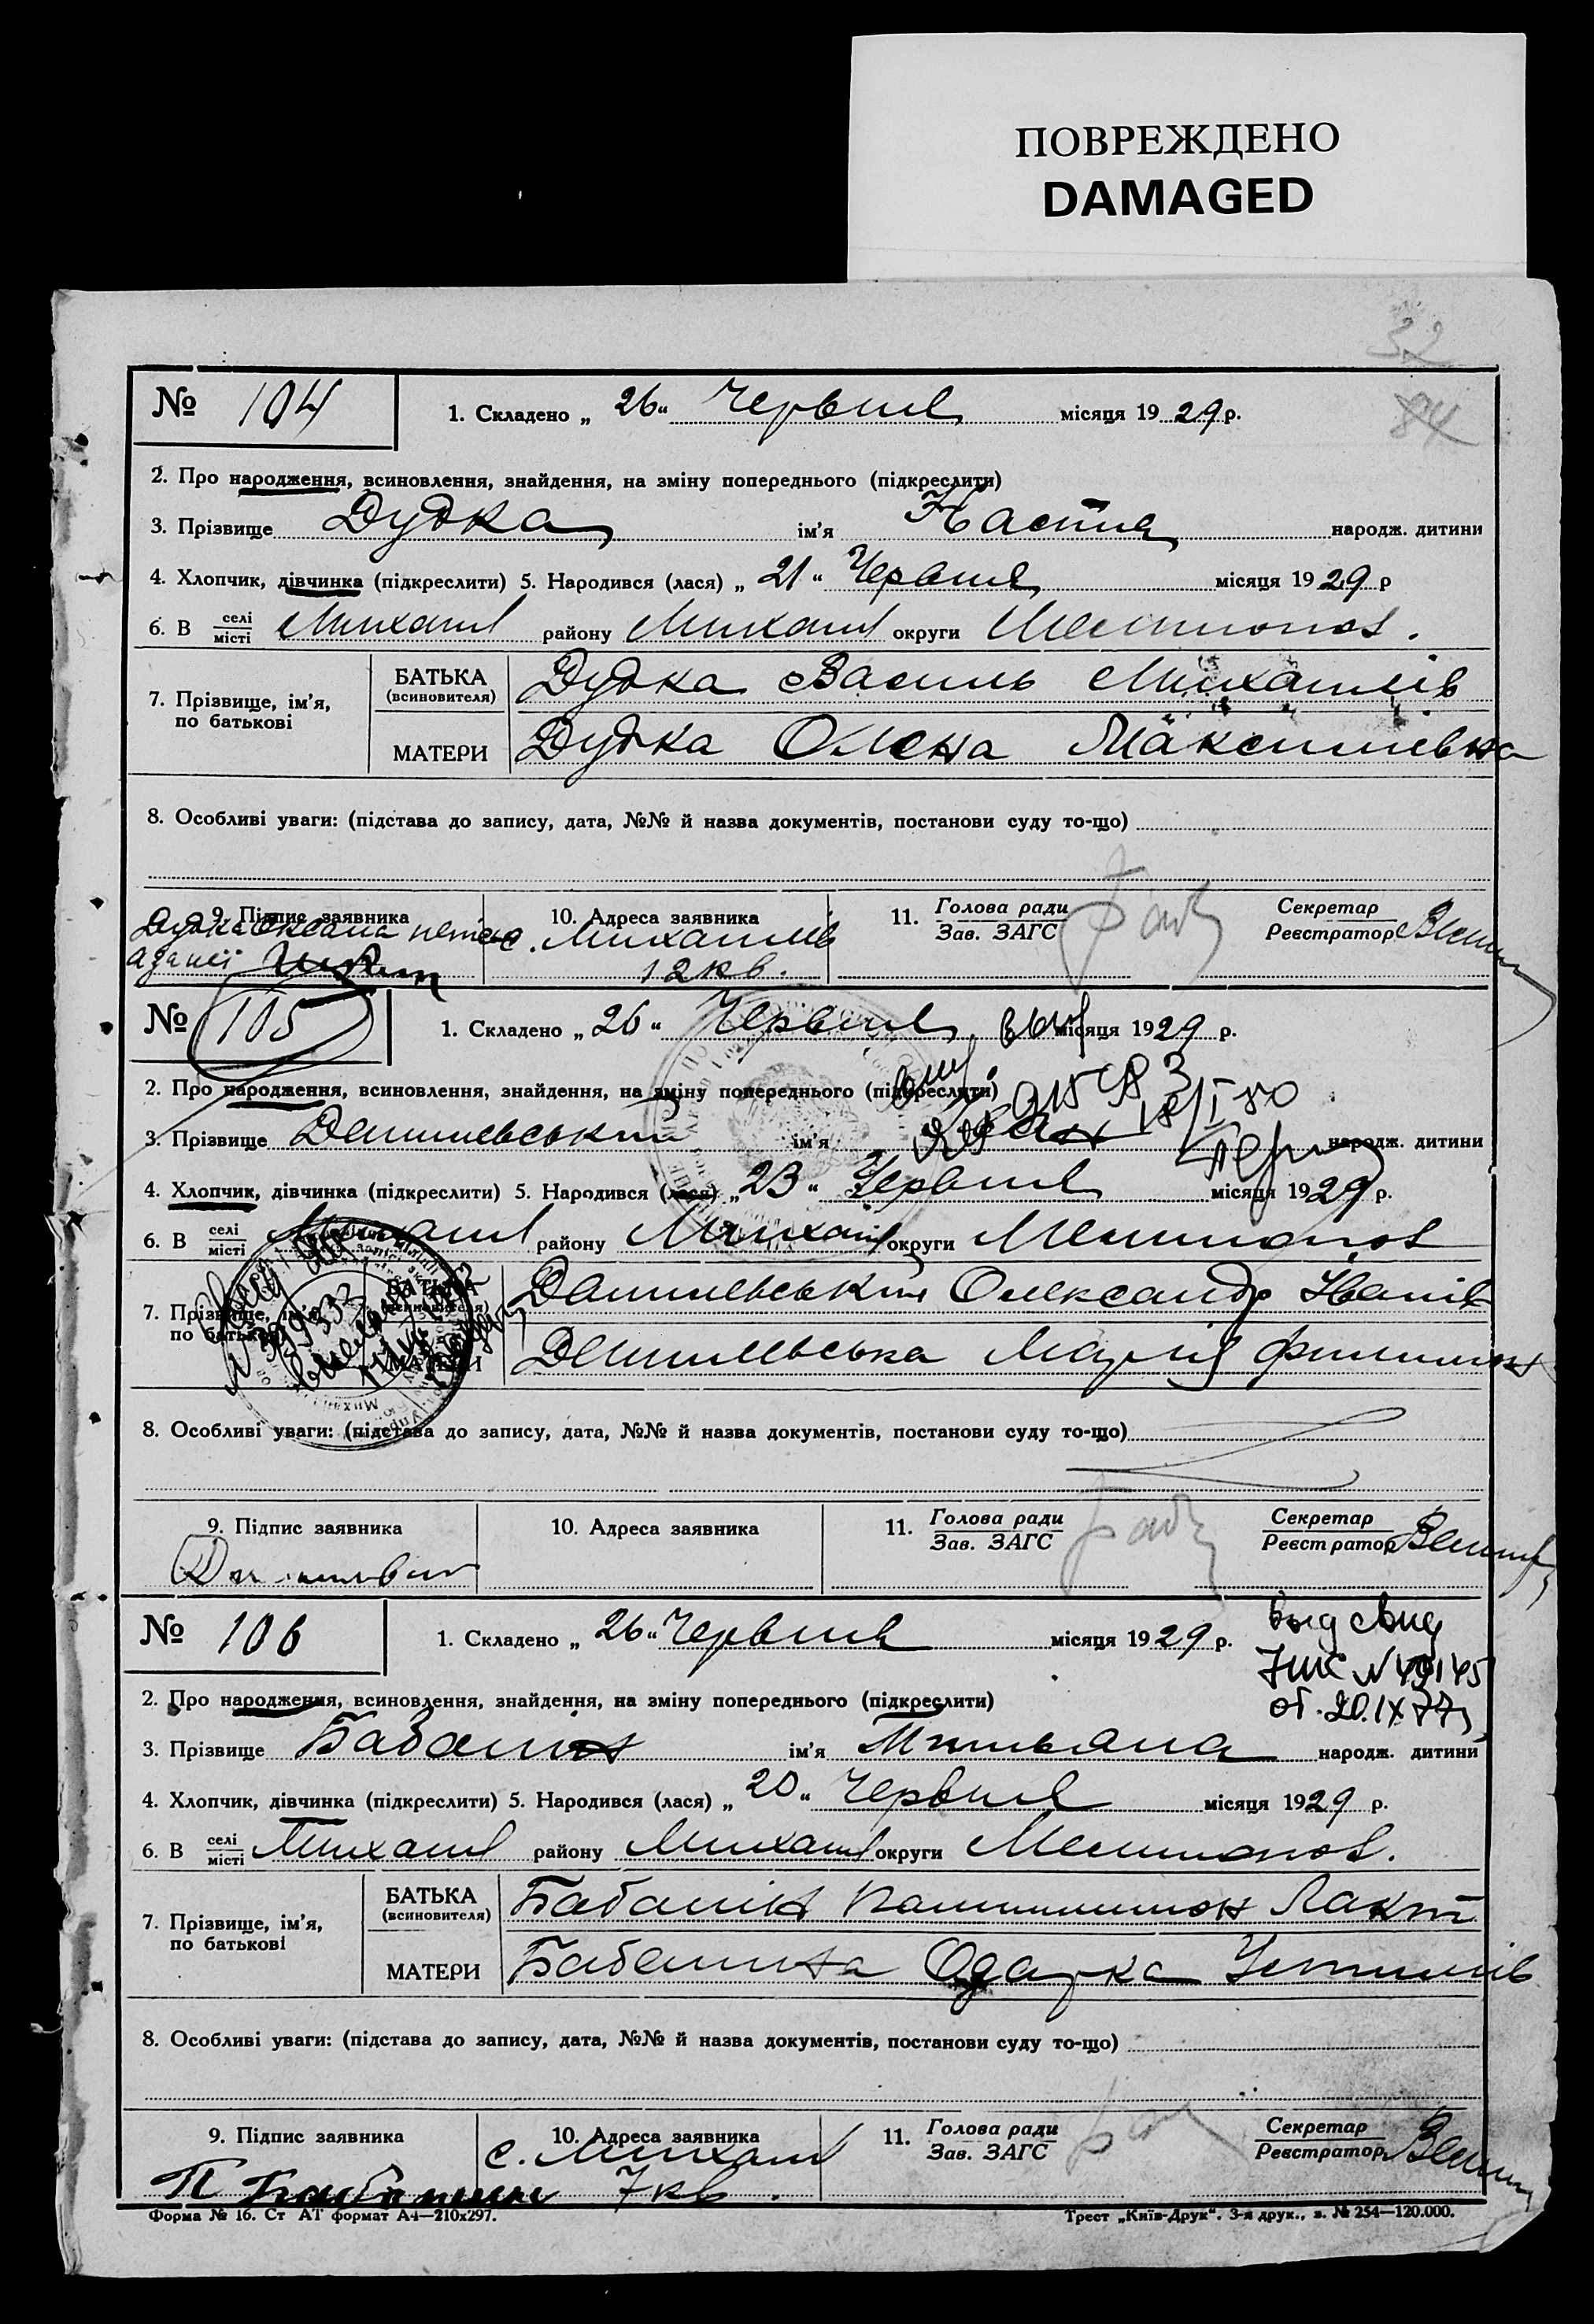 ПОВРЕЖДЕНО
DAMAGED
32
84
№ 104 1. Складено „ 26 “ Червня місяця 1929 р.
2. Про народження, всиновлення, знайдення, на зміну попереднього (підкреслити)
3. Прізвище Дудка ім'я Настя народж. дитини
4. Хлопчик, дівчинка (підкреслити) 5. Народився (лася) „ 21 “ Червня місяця 1929 р
6. В селі/місті Михайл району Михайл округи Мелитопол.
7. Прізвище, ім'я, по батькові
БАТЬКА (всиновителя) Дудка Василь Михайлів
МАТЕРИ Дудка Олена Максимівна
8. Особливі уваги: (підстава до запису, дата, №№ й назва документів, постанови суду то-що)
9. Підпис заявника 10. Адреса заявника 11. Голова ради Зав. ЗАГС Секретар Реєстратор
Дудка Оксана с. Михайлів
12 кв.
№ 105 1. Складено „ 26 “ Червня місяця 1929 р.
2. Про народження, всиновлення, знайдення, на зміну попереднього (підкреслити)
18/I 80
3. Прізвище Данилевський ім'я народж. дитини
4. Хлопчик, дівчинка (підкреслити) 5. Народився (лася) „ 23 “ Червня місяця 1929 р.
6. В селі/місті Михайл району Михайл округи Мелитопол
7. Прізвище, ім'я, по батькові
БАТЬКА (всиновителя) Данилевський Олександр Іванів
МАТЕРИ Данилевська Марія Филимон
8. Особливі уваги: (підстава до запису, дата, №№ й назва документів, постанови суду то-що)
9. Підпис заявника 10. Адреса заявника 11. Голова ради Зав. ЗАГС Секретар Реєстратор
№ 106 1. Складено „ 26 “ Червня місяця 1929 р.
выд свид
N 49145
от 20.IX 77
2. Про народження, всиновлення, знайдення, на зміну попереднього (підкреслити)
3. Прізвище Бабанін ім'я народж. дитини
4. Хлопчик, дівчинка (підкреслити) 5. Народився (лася) „ 20 “ Червня місяця 1929 р.
6. В селі/місті Михайл району Михайл округи Мелитопол.
7. Прізвище, ім'я, по батькові
БАТЬКА (всиновителя) Бабанін
МАТЕРИ Бабанина Одарка Устимів
8. Особливі уваги: (підстава до запису, дата, №№ й назва документів, постанови суду то-що)
9. Підпис заявника 10. Адреса заявника 11. Голова ради Зав. ЗАГС Секретар Реєстратор
с. Михайл
7 кв.
Форма № 16. Ст АТ формат А4—210x297. Трест „Київ-Друк“. 3-я друк., з. № 254—120.000.